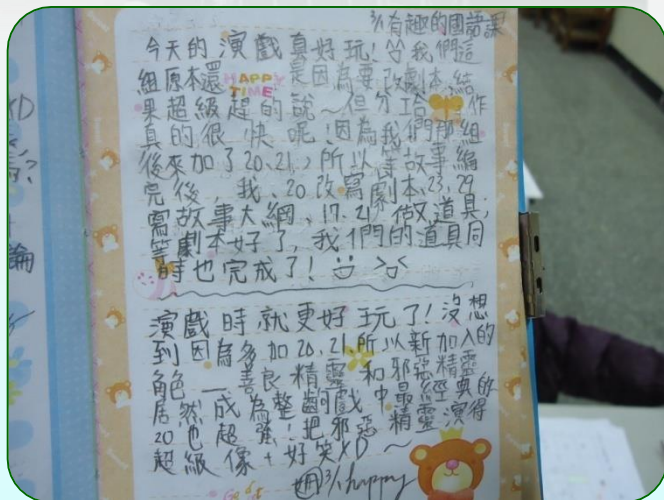 3/1有趣的國語課
今天的演戲真好玩!我們這
組原本還HAPPY是因為要改劇本,結
TIME
果超級趕的說~但分工合作
真的很快呢!因為我們那組
後來加了20、21,所以等故事編
完後,我、20改寫劇本、23、29
寫故事大綱、17、21做道具,
等劇本好了,我們的道具同
時也完成了!
演戲時就更好玩了!沒想
到因為多加20、21所以新加入的
角色—善良精靈和邪惡精靈
居然成為整齣戲中最經典的
20也超強!把邪惡精靈演得
超級像+好笑XD~
3/1 happy